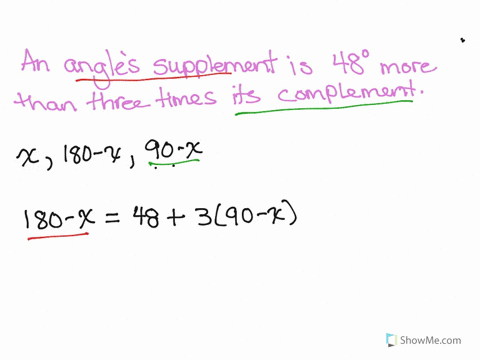 An angle's supplement is 48° more
than three times its complement.
x, 180-x, 90-x
180-x = 48 + 3(90-x)
ShowMe.com